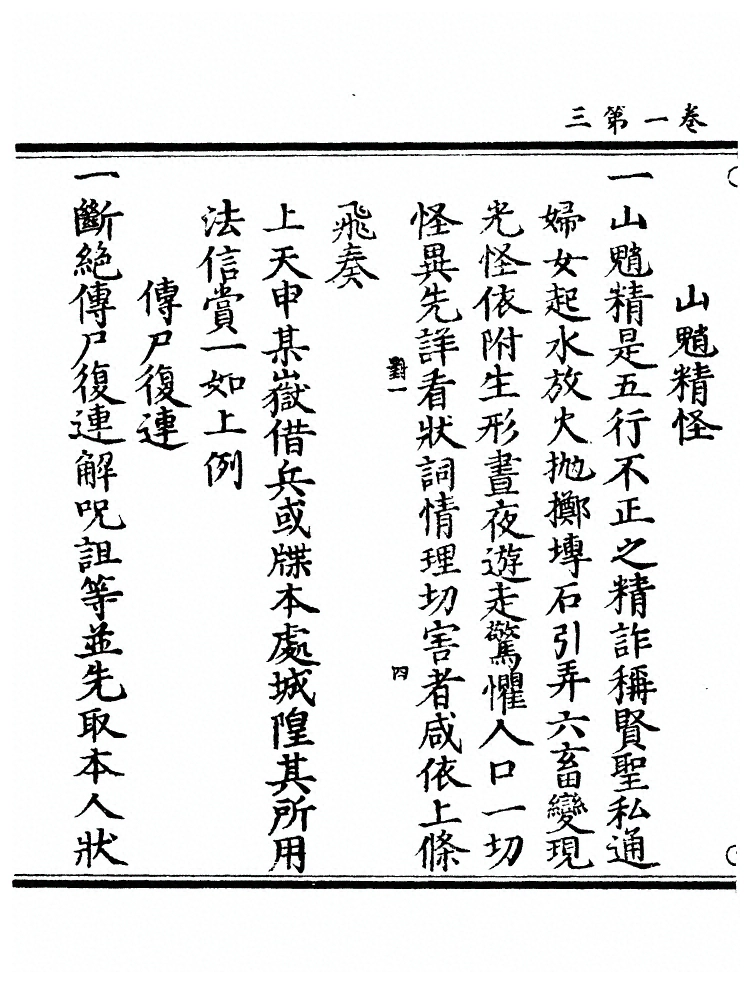 卷一第三
山魈精怪
一山魈精是五行不正之精詐稱賢聖私通
婦女起水放火拋擲塼石引弄六畜變現
光怪依附生形晝夜遊走驚懼人口一切
怪異先詳看狀詞情理切害者咸依上條
對一
四
飛奏
上天申某嶽借兵或牒本處城隍其所用
法信賞一如上例
傳尸復連
一斷絕傳尸復連解呪詛等並先取本人狀